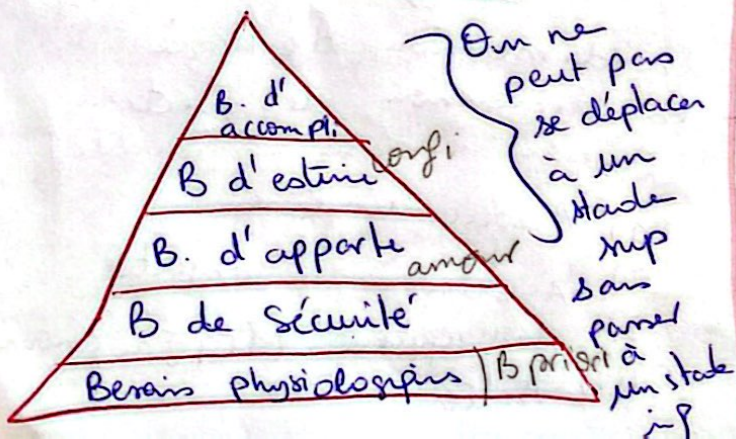 B. d'
accompli.
B d'estime confi
B. d'apparte amour
B de sécurité
Besoins physiologiques B priori
On ne
peut pas
se déplacer
à un
stade
sup
sans
passer
à
un stade
inf